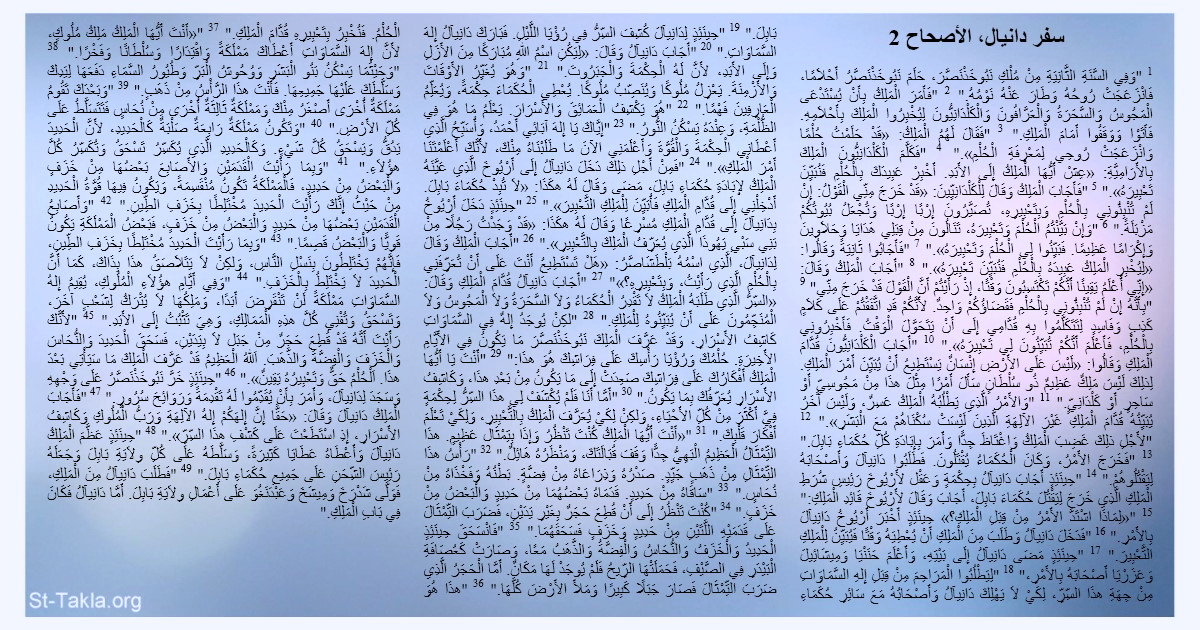 سفر دانيال، الأصحاح 2
1 "وَفِي السَّنَةِ الثَّانِيَةِ مِنْ مُلْكِ نَبُوخَذْنَصَّرَ، حَلَمَ نَبُوخَذْنَصَّرُ أَحْلاَمًا،
فَانْزَعَجَتْ رُوحُهُ وَطَارَ عَنْهُ نَوْمُهُ." 2 "فَأَمَرَ الْمَلِكُ بِأَنْ يُسْتَدْعَى
الْمَجُوسُ وَالسَّحَرَةُ وَالْعَرَّافُونَ وَالْكَلْدَانِيُّونَ لِيُخْبِرُوا الْمَلِكَ بِأَحْلاَمِهِ.
فَأَتَوْا وَوَقَفُوا أَمَامَ الْمَلِكِ." 3 "فَقَالَ لَهُمُ الْمَلِكُ: «قَدْ حَلَمْتُ حُلْمًا
وَانْزَعَجَتْ رُوحِي لِمَعْرِفَةِ الْحُلْمِ»." 4 "فَكَلَّمَ الْكَلْدَانِيُّونَ الْمَلِكَ
بِالأَرَامِيَّةِ: «عِشْ أَيُّهَا الْمَلِكُ إِلَى الأَبَدِ. أَخْبِرْ عَبِيدَكَ بِالْحُلْمِ فَنُبَيِّنَ
تَعْبِيرَهُ»." 5 "فَأَجَابَ الْمَلِكُ وَقَالَ لِلْكَلْدَانِيِّينَ: «قَدْ خَرَجَ مِنِّي الْقَوْلُ: إِنْ
لَمْ تُنْبِئُونِي بِالْحُلْمِ وَبِتَعْبِيرِهِ، تُصَيَّرُونَ إِرْبًا إِرْبًا وَتُجْعَلُ بُيُوتُكُمْ
مَزْبَلَةً." 6 "وَإِنْ بَيَّنْتُمُ الْحُلْمَ وَتَعْبِيرَهُ، تَنَالُونَ مِنْ قِبَلِي هَدَايَا وَحَلاَوِينَ
وَإِكْرَامًا عَظِيمًا. فَبَيِّنُوا لِي الْحُلْمَ وَتَعْبِيرَهُ»." 7 "فَأَجَابُوا ثَانِيَةً وَقَالُوا:
«لِيُخْبِرِ الْمَلِكُ عَبِيدَهُ بِالْحُلْمِ فَنُبَيِّنَ تَعْبِيرَهُ»." 8 "أَجَابَ الْمَلِكُ وَقَالَ:
«إِنِّي أَعْلَمُ يَقِينًا أَنَّكُمْ تَكْتَسِبُونَ وَقْتًا، إِذْ رَأَيْتُمْ أَنَّ الْقَوْلَ قَدْ خَرَجَ مِنِّي" 9
"بِأَنَّهُ إِنْ لَمْ تُنْبِئُونِي بِالْحُلْمِ فَقَضَاؤُكُمْ وَاحِدٌ. لأَنَّكُمْ قَدِ اتَّفَقْتُمْ عَلَى كَلاَمٍ
كَذِبٍ وَفَاسِدٍ لِتَتَكَلَّمُوا بِهِ قُدَّامِي إِلَى أَنْ يَتَحَوَّلَ الْوَقْتُ. فَأَخْبِرُونِي
بِالْحُلْمِ، فَأَعْلَمَ أَنَّكُمْ تُبَيِّنُونَ لِي تَعْبِيرَهُ»." 10 "أَجَابَ الْكَلْدَانِيُّونَ قُدَّامَ
الْمَلِكِ وَقَالُوا: «لَيْسَ عَلَى الأَرْضِ إِنْسَانٌ يَسْتَطِيعُ أَنْ يُبَيِّنَ أَمْرَ الْمَلِكِ.
لِذلِكَ لَيْسَ مَلِكٌ عَظِيمٌ ذُو سُلْطَانٍ سَأَلَ أَمْرًا مِثْلَ هذَا مِنْ مَجُوسِيٍّ أَوْ
سَاحِرٍ أَوْ كَلْدَانِيٍّ." 11 "وَالأَمْرُ الَّذِي يَطْلُبُهُ الْمَلِكُ عَسِرٌ، وَلَيْسَ آخَرُ
يُبَيِّنُهُ قُدَّامَ الْمَلِكِ غَيْرَ الآلِهَةِ الَّذِينَ لَيْسَتْ سُكْنَاهُمْ مَعَ الْبَشَرِ»." 12
"لأَجْلِ ذلِكَ غَضِبَ الْمَلِكُ وَاغْتَاظَ جِدًّا وَأَمَرَ بِإِبَادَةِ كُلِّ حُكَمَاءِ بَابِلَ."
13 "فَخَرَجَ الأَمْرُ، وَكَانَ الْحُكَمَاءُ يُقْتَلُونَ. فَطَلَبُوا دَانِيآلَ وَأَصْحَابَهُ
لِيَقْتُلُوهُمْ." 14 "حِينَئِذٍ أَجَابَ دَانِيآلُ بِحِكْمَةٍ وَعَقْل لأَرْيُوخَ رَئِيسِ شُرَطِ
الْمَلِكِ الَّذِي خَرَجَ لِيَقْتُلَ حُكَمَاءَ بَابِلَ، أَجَابَ وَقَالَ لأَرْيُوخَ قَائِدِ الْمَلِكِ:"
15 "«لِمَاذَا اشْتَدَّ الأَمْرُ مِنْ قِبَلِ الْمَلِكِ؟» حِينَئِذٍ أَخْبَرَ أَرْيُوخُ دَانِيآلَ
بِالأَمْرِ." 16 "فَدَخَلَ دَانِيآلُ وَطَلَبَ مِنَ الْمَلِكِ أَنْ يُعْطِيَهُ وَقْتًا فَيُبَيِّنُ لِلْمَلِكِ
التَّعْبِيرَ." 17 "حِينَئِذٍ مَضَى دَانِيآلُ إِلَى بَيْتِهِ، وَأَعْلَمَ حَنَنْيَا وَمِيشَائِيلَ
وَعَزَرْيَا أَصْحَابَهُ بِالأَمْرِ،" 18 "لِيَطْلُبُوا الْمَرَاحِمَ مِنْ قِبَلِ إِلهِ السَّمَاوَاتِ
مِنْ جِهَةِ هذَا السِّرِّ، لِكَيْ لاَ يَهْلِكَ دَانِيآلُ وَأَصْحَابُهُ مَعَ سَائِرِ حُكَمَاءِ
بَابِلَ." 19 "حِينَئِذٍ لِدَانِيآلَ كُشِفَ السِّرُّ فِي رُؤْيَا اللَّيْلِ. فَبَارَكَ دَانِيآلُ إِلهَ
السَّمَاوَاتِ." 20 "أَجَابَ دَانِيآلُ وَقَالَ: «لِيَكُنِ اسْمُ اللهِ مُبَارَكًا مِنَ الأَزَلِ
وَإِلَى الأَبَدِ، لأَنَّ لَهُ الْحِكْمَةَ وَالْجَبَرُوتَ." 21 "وَهُوَ يُغَيِّرُ الأَوْقَاتَ
وَالأَزْمِنَةَ. يَعْزِلُ مُلُوكًا وَيُنَصِّبُ مُلُوكًا. يُعْطِي الْحُكَمَاءَ حِكْمَةً، وَيُعَلِّمُ
الْعَارِفِينَ فَهْمًا." 22 "هُوَ يَكْشِفُ الْعَمَائِقَ وَالأَسْرَارَ. يَعْلَمُ مَا هُوَ فِي
الظُّلْمَةِ، وَعِنْدَهُ يَسْكُنُ النُّورُ." 23 "إِيَّاكَ يَا إِلهَ آبَائِي أَحْمَدُ، وَأُسَبِّحُ الَّذِي
أَعْطَانِي الْحِكْمَةَ وَالْقُوَّةَ وَأَعْلَمَنِي الآنَ مَا طَلَبْنَاهُ مِنْكَ، لأَنَّكَ أَعْلَمْتَنَا
أَمْرَ الْمَلِكِ»." 24 "فَمِنْ أَجْلِ ذلِكَ دَخَلَ دَانِيآلُ إِلَى أَرْيُوخَ الَّذِي عَيَّنَهُ
الْمَلِكُ لإِبَادَةِ حُكَمَاءِ بَابِلَ، مَضَى وَقَالَ لَهُ هكَذَا: «لاَ تُبِدْ حُكَمَاءَ بَابِلَ.
أَدْخِلْنِي إِلَى قُدَّامِ الْمَلِكِ فَأُبَيِّنَ لِلْمَلِكِ التَّعْبِيرَ»." 25 "حِينَئِذٍ دَخَلَ أَرْيُوخُ
بِدَانِيآلَ إِلَى قُدَّامِ الْمَلِكِ مُسْرِعًا وَقَالَ لَهُ هكَذَا: «قَدْ وَجَدْتُ رَجُلاً مِنْ
بَنِي سَبْيِ يَهُوذَا الَّذِي يُعَرِّفُ الْمَلِكَ بِالتَّعْبِيرِ»." 26 "أَجَابَ الْمَلِكُ وَقَالَ
لِدَانِيآلَ، الَّذِي اسْمُهُ بَلْطَشَاصَّرُ: «هَلْ تَسْتَطِيعُ أَنْتَ عَلَى أَنْ تُعَرِّفَنِي
بِالْحُلْمِ الَّذِي رَأَيْتُ، وَبِتَعْبِيرِهِ؟»" 27 "أَجَابَ دَانِيآلُ قُدَّامَ الْمَلِكِ وَقَالَ:
«السِّرُّ الَّذِي طَلَبَهُ الْمَلِكُ لاَ تَقْدِرُ الْحُكَمَاءُ وَلاَ السَّحَرَةُ وَلاَ الْمَجُوسُ وَلاَ
الْمُنَجِّمُونَ عَلَى أَنْ يُبَيِّنُوهُ لِلْمَلِكِ." 28 "لكِنْ يُوجَدُ إِلهٌ فِي السَّمَاوَاتِ
كَاشِفُ الأَسْرَارِ، وَقَدْ عَرَّفَ الْمَلِكَ نَبُوخَذْنَصَّرَ مَا يَكُونُ فِي الأَيَّامِ
الأَخِيرَةِ. حُلْمُكَ وَرُؤْيَا رَأْسِكَ عَلَى فِرَاشِكَ هُوَ هذَا:" 29 "أَنْتَ يَا أَيُّهَا
الْمَلِكُ أَفْكَارُكَ عَلَى فِرَاشِكَ صَعِدَتْ إِلَى مَا يَكُونُ مِنْ بَعْدِ هذَا، وَكَاشِفُ
الأَسْرَارِ يُعَرِّفُكَ بِمَا يَكُونُ." 30 "أَمَّا أَنَا فَلَمْ يُكْشَفْ لِي هذَا السِّرُّ لِحِكْمَةٍ
فِيَّ أَكْثَرَ مِنْ كُلِّ الأَحْيَاءِ، وَلكِنْ لِكَيْ يُعَرَّفَ الْمَلِكُ بِالتَّعْبِيرِ، وَلِكَيْ تَعْلَمَ
أَفْكَارَ قَلْبِكَ." 31 "«أَنْتَ أَيُّهَا الْمَلِكُ كُنْتَ تَنْظُرُ وَإِذَا بِتِمْثَال عَظِيمٍ. هذَا
التِّمْثَالُ الْعَظِيمُ الْبَهِيُّ جِدًّا وَقَفَ قُبَالَتَكَ، وَمَنْظَرُهُ هَائِلٌ." 32 "رَأْسُ هذَا
التِّمْثَالِ مِنْ ذَهَبٍ جَيِّدٍ. صَدْرُهُ وَذِرَاعَاهُ مِنْ فِضَّةٍ. بَطْنُهُ وَفَخْذَاهُ مِنْ
نُحَاسٍ." 33 "سَاقَاهُ مِنْ حَدِيدٍ. قَدَمَاهُ بَعْضُهُمَا مِنْ حَدِيدٍ وَالْبَعْضُ مِنْ
خَزَفٍ." 34 "كُنْتَ تَنْظُرُ إِلَى أَنْ قُطِعَ حَجَرٌ بِغَيْرِ يَدَيْنِ، فَضَرَبَ التِّمْثَالَ
عَلَى قَدَمَيْهِ اللَّتَيْنِ مِنْ حَدِيدٍ وَخَزَفٍ فَسَحَقَهُمَا." 35 "فَانْسَحَقَ حِينَئِذٍ
الْحَدِيدُ وَالْخَزَفُ وَالنُّحَاسُ وَالْفِضَّةُ وَالذَّهَبُ مَعًا، وَصَارَتْ كَعُصَافَةِ
الْبَيْدَرِ فِي الصَّيْفِ، فَحَمَلَتْهَا الرِّيحُ فَلَمْ يُوجَدْ لَهَا مَكَانٌ. أَمَّا الْحَجَرُ الَّذِي
ضَرَبَ التِّمْثَالَ فَصَارَ جَبَلاً كَبِيرًا وَمَلأَ الأَرْضَ كُلَّهَا." 36 "هذَا هُوَ
الْحُلْمُ. فَنُخْبِرُ بِتَعْبِيرِهِ قُدَّامَ الْمَلِكِ." 37 "«أَنْتَ أَيُّهَا الْمَلِكُ مَلِكُ مُلُوكٍ،
لأَنَّ إِلهَ السَّمَاوَاتِ أَعْطَاكَ مَمْلَكَةً وَاقْتِدَارًا وَسُلْطَانًا وَفَخْرًا." 38
"وَحَيْثُمَا يَسْكُنُ بَنُو الْبَشَرِ وَوُحُوشُ الْبَرِّ وَطُيُورُ السَّمَاءِ دَفَعَهَا لِيَدِكَ
وَسَلَّطَكَ عَلَيْهَا جَمِيعِهَا. فَأَنْتَ هذَا الرَّأْسُ مِنْ ذَهَبٍ." 39 "وَبَعْدَكَ تَقُومُ
مَمْلَكَةٌ أُخْرَى أَصْغَرُ مِنْكَ وَمَمْلَكَةٌ ثَالِثَةٌ أُخْرَى مِنْ نُحَاسٍ فَتَتَسَلَّطُ عَلَى
كُلِّ الأَرْضِ." 40 "وَتَكُونُ مَمْلَكَةٌ رَابِعَةٌ صَلْبَةٌ كَالْحَدِيدِ، لأَنَّ الْحَدِيدَ
يَدُقُّ وَيَسْحَقُ كُلَّ شَيْءٍ. وَكَالْحَدِيدِ الَّذِي يُكَسِّرُ تَسْحَقُ وَتُكَسِّرُ كُلَّ
هؤُلاَءِ." 41 "وَبِمَا رَأَيْتَ الْقَدَمَيْنِ وَالأَصَابِعَ بَعْضُهَا مِنْ خَزَفٍ
وَالْبَعْضُ مِنْ حَدِيدٍ، فَالْمَمْلَكَةُ تَكُونُ مُنْقَسِمَةً، وَيَكُونُ فِيهَا قُوَّةُ الْحَدِيدِ
مِنْ حَيْثُ إِنَّكَ رَأَيْتَ الْحَدِيدَ مُخْتَلِطًا بِخَزَفِ الطِّينِ." 42 "وَأَصَابِعُ
الْقَدَمَيْنِ بَعْضُهَا مِنْ حَدِيدٍ وَالْبَعْضُ مِنْ خَزَفٍ، فَبَعْضُ الْمَمْلَكَةِ يَكُونُ
قَوِيًّا وَالْبَعْضُ قَصِمًا." 43 "وَبِمَا رَأَيْتَ الْحَدِيدَ مُخْتَلِطًا بِخَزَفِ الطِّينِ،
فَإِنَّهُمْ يَخْتَلِطُونَ بِنَسْلِ النَّاسِ، وَلكِنْ لاَ يَتَلاَصَقُ هذَا بِذَاكَ، كَمَا أَنَّ
الْحَدِيدَ لاَ يَخْتَلِطُ بِالْخَزَفِ." 44 "وَفِي أَيَّامِ هؤُلاَءِ الْمُلُوكِ، يُقِيمُ إِلهُ
السَّمَاوَاتِ مَمْلَكَةً لَنْ تَنْقَرِضَ أَبَدًا، وَمَلِكُهَا لاَ يُتْرَكُ لِشَعْبٍ آخَرَ،
وَتَسْحَقُ وَتُفْنِي كُلَّ هذِهِ الْمَمَالِكِ، وَهِيَ تَثْبُتُ إِلَى الأَبَدِ." 45 "لأَنَّكَ
رَأَيْتَ أَنَّهُ قَدْ قُطِعَ حَجَرٌ مِنْ جَبَل لاَ بِيَدَيْنِ، فَسَحَقَ الْحَدِيدَ وَالنُّحَاسَ
وَالْخَزَفَ وَالْفِضَّةَ وَالذَّهَبَ. اَللهُ الْعَظِيمُ قَدْ عَرَّفَ الْمَلِكَ مَا سَيَأْتِي بَعْدَ
هذَا. اَلْحُلْمُ حَقٌّ وَتَعْبِيرُهُ يَقِينٌ»." 46 "حِينَئِذٍ خَرَّ نَبُوخَذْنَصَّرُ عَلَى وَجْهِهِ
وَسَجَدَ لِدَانِيآلَ، وَأَمَرَ بِأَنْ يُقَدِّمُوا لَهُ تَقْدِمَةً وَرَوَائِحَ سُرُورٍ." 47 "فَأَجَابَ
الْمَلِكُ دَانِيآلَ وَقَالَ: «حَقًّا إِنَّ إِلهَكُمْ إِلهُ الآلِهَةِ وَرَبُّ الْمُلُوكِ وَكَاشِفُ
الأَسْرَارِ، إِذِ اسْتَطَعْتَ عَلَى كَشْفِ هذَا السِّرِّ»." 48 "حِينَئِذٍ عَظَّمَ الْمَلِكُ
دَانِيآلَ وَأَعْطَاهُ عَطَايَا كَثِيرَةً، وَسَلَّطَهُ عَلَى كُلِّ وِلاَيَةِ بَابِلَ وَجَعَلَهُ
رَئِيسَ الشِّحَنِ عَلَى جَمِيعِ حُكَمَاءِ بَابِلَ." 49 "فَطَلَبَ دَانِيآلُ مِنَ الْمَلِكِ،
فَوَلَّى شَدْرَخَ وَمِيشَخَ وَعَبْدَنَغُوَ عَلَى أَعْمَالِ وِلاَيَةِ بَابِلَ. أَمَّا دَانِيآلُ فَكَانَ
فِي بَابِ الْمَلِكِ."
St-Takla.org